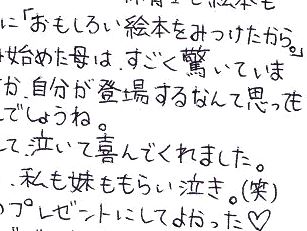 絵本も
に「おもしろい絵本をみつけたから。」
始めた母は、すごく驚いていま
か、自分が登場するなんて思っても
でしょうね。
て、泣いて喜んでくれました。
、私も妹ももらい泣き。(笑)
のプレゼントにしてよかった♡